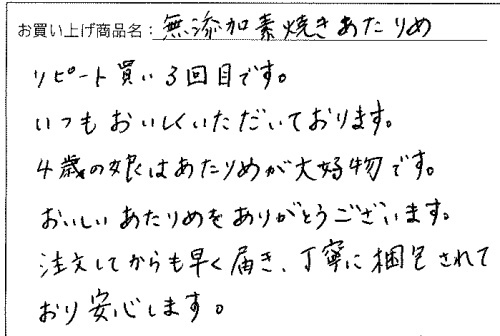 お買い上げ商品名：無添加素焼きあたりめ
リピート買い3回目です。
いつもおいしくいただいております。
4歳の娘はあたりめが大好物です。
おいしいあたりめをありがとうございます。
注文してからも早く届き、丁寧に梱包されて
おり安心します。